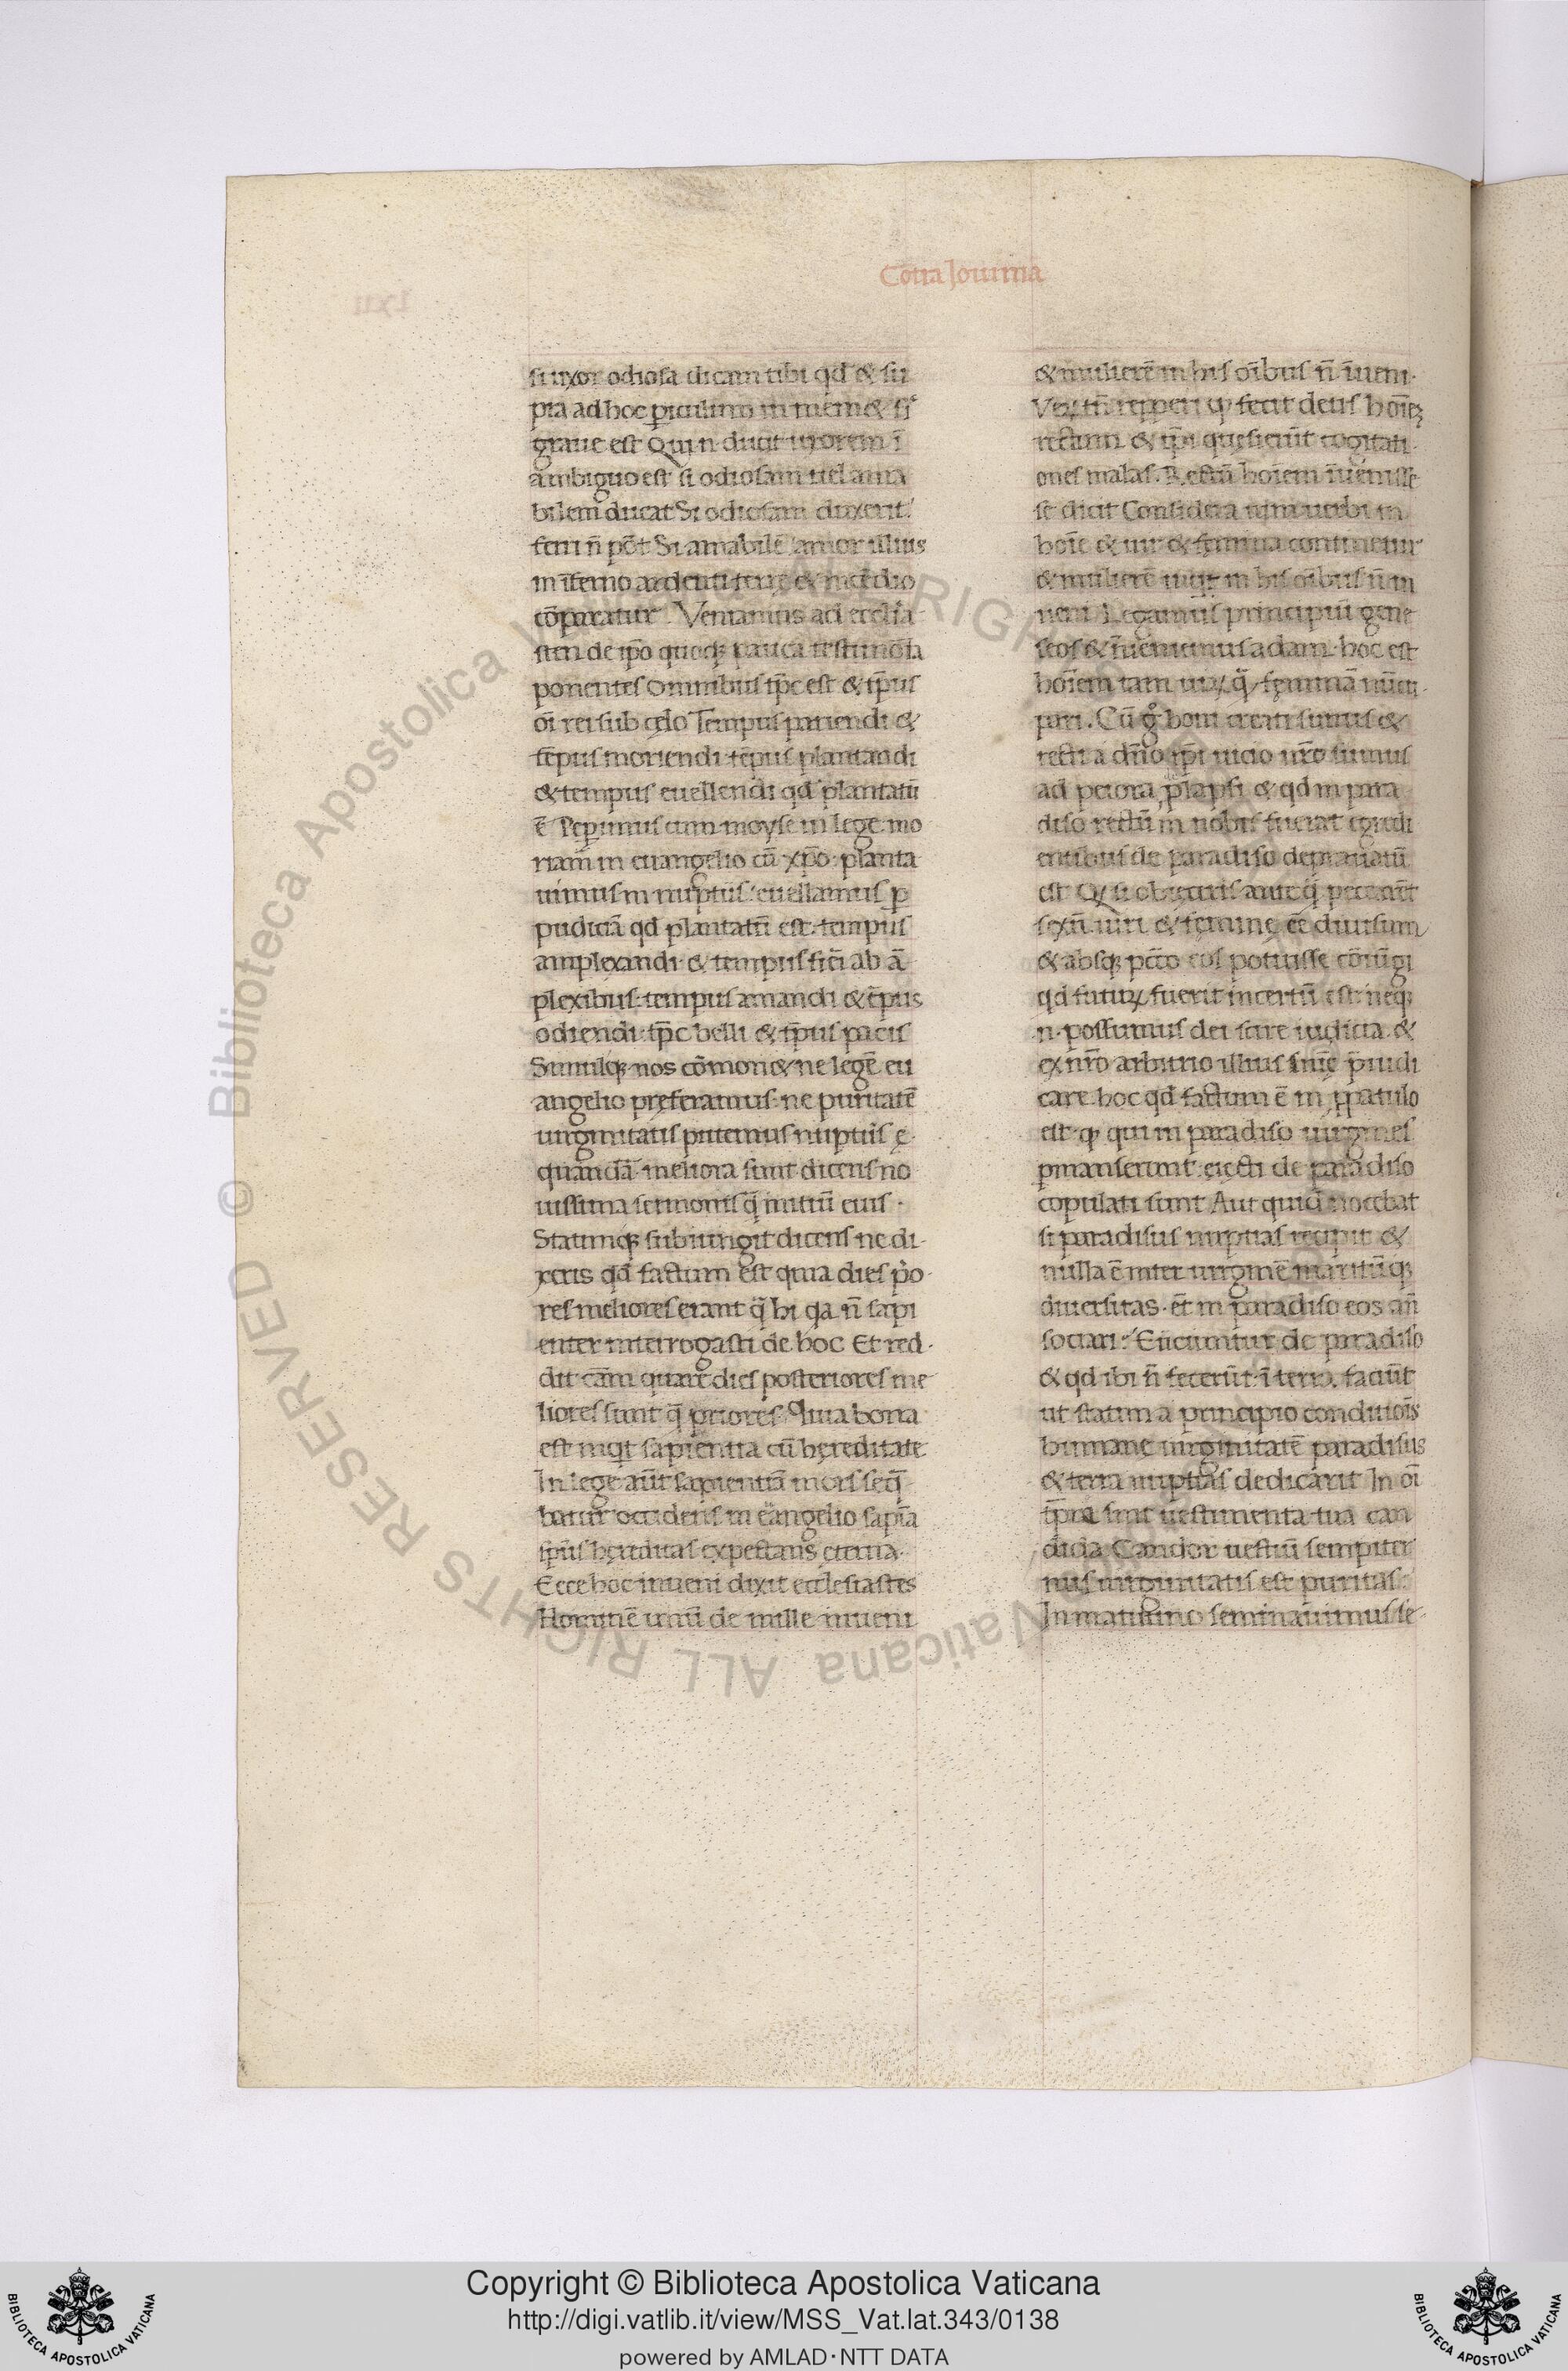 Cōtra Jouiniā
si uxor odiosa dicam tibi qd̄ & su
pra ad hoc p̲iculum in tuem & si
graue est Qui n̄ ducit uxorem ī
ambiguo est si odiosam uel ama
bilem ducat Si odiosam duxerit:
ferri n̄ pōt Si amabilē amor illius
in īferno ardenti terrę & incēdio
cōparatur. Veniamus ad ecclīa
sten de ip̄o quoq; pauca testimōia
ponentes Omnibus tp̄c est & tp̄us
oī rei sub cęlo Tempus pariendi &
tēpus moriendi tēpus plantandi
& tempus euellendi qd̄ plantatū
ē Pep̲imus cum moyse in lege mo
riam̄ in euangelio cū xp̄o planta
uimus in nuptiis: euellamus p̲
pudiciā qd plantatū est tempus
amplexandi & tempus fieri ab ā
plexibus: tempus amandi & tēpus
odiendi: tp̄c belli & tp̄us pacis
Simulq; nos cōmon& ne legē eu
angelio pręferamus: ne puritatē
uirginitatis putemus nuptiis ę
quandā meliora sunt dicens no
uissima sermonis q̄ initiū eius.
Statimq; subiungit dicens ne di
xeris qd̄ factum est quia dies p̊o
res meliores erant q̄ hi qa n̄ sapi
enter interrogasti de hoc Et red
dit cām quare dies posteriores me
liores sunt q̄ priores. Quia bona
est inqit sapientia cū hęreditate
In lege aūt sapientiā mors seq̄
batur occidens in euangelio sapīa
sp̄us hęrditas expectans ęterna.
Ecce hoc inueni dixit ecclesiastes
Hominē unū de mille inueni
& mulierē in his oībus n̄ īueni.
Veꝝ tn̄ repperi q; fecit deus hoīez
rectum & ip̄i quęsierūt cogitati
ones malas. Rectū hoīem īuenisse
se dicit Considera uim uerbi in
hoīe & uir & femina continetur
& mulierē inqit in his oībus n̄ in
ueni Legamus principiū gene
seos & īueniemus adam. hoc est
hoīem tam uiꝝ q̄ feminā nūcu
pari. Cū g̊ boni creati simus &
recti a dn̄o ip̄i uicio nr̄o simus
ad peiora p̲lapsi & qd in para
diso rectū in nobis fuerat egredi
entibus de paradiso deprauatū
est Q; si obieceris anteq̄ peccarēt
sexū. uiri & femine eē diuisum
& absq; pctō eos potuisse cōiūgi
qd futuꝝ fuerit incertū est neq;
n. possumus dei scire iudicia &
ex nr̄o arbitrio illius sn̄ię p̄iudi
care. hoc qd̄ factum ē in p̲patulo
est q; qui in paradiso uirgines
p̲manserunt eiecti de paradiso
copulati sunt Aut quid nocebat
si paradisus nuptias recipit &
nulla ē inter uirginē maritūq;
diuersitas. et in paradiso eos an̄
sociari: Eiiciuntur de paradiso
& qd ibi n̄ fecerūt ī terra. faciūt
ut statim a principio conditiois
humane uirginitatē paradisus
& terra nuptias dedicarit In oī
tp̄re sint uestimenta tua can
dida Candor uestiū sempiter
nus uirginitatis est puritas.
In matutino seminauimus se
© Biblioteca Apostolica Vaticana ALL RIGHTS RESERVED
Copyright © Biblioteca Apostolica Vaticana
http://digi.vatlib.it/view/MSS_Vat.lat.343/0138
powered by AMLAD·NTT DATA
BIBLIOTECA APOSTOLICA VATICANA
BIBLIOTECA APOSTOLICA VATICANA